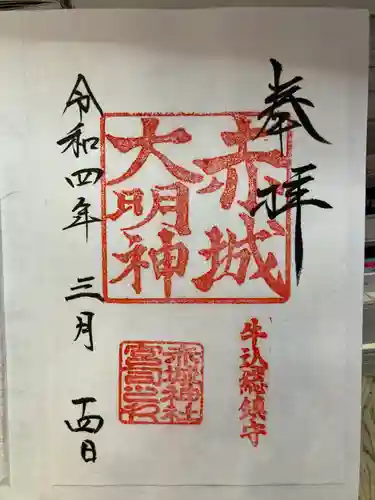 奉拝
赤城
大明神
牛込總鎮守
赤城神社
宮司之印
令和四年 三月 十四日